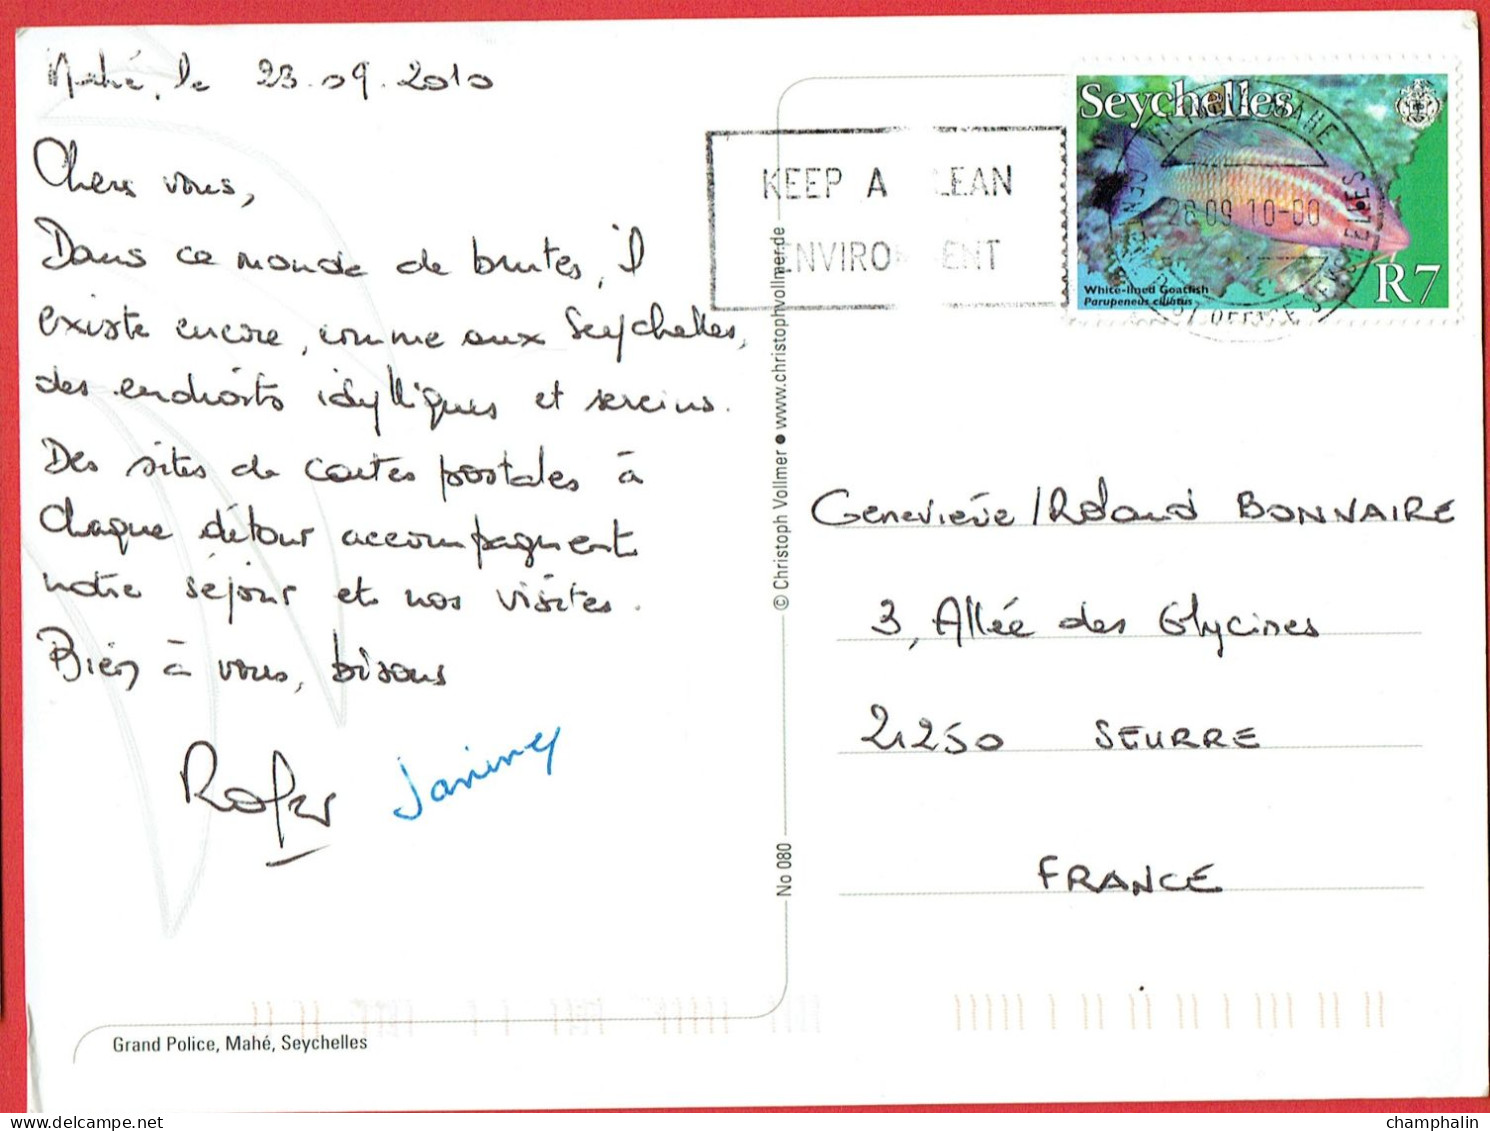 Mahé, le 23.09.2010
Chers vous,
Dans ce monde de brutes, il
existe encore, comme aux Seychelles,
des endroits idylliques et sereins.
Des sites de cartes postales à
chaque détour accompagnent
notre séjour et nos visites.
Bien à vous, bisous
Roger Janine
Grand Police, Mahé, Seychelles
© Christoph Vollmer ● www.christophvollmer.de
No 080
KEEP A LEAN
ENVIRO ENT
Seychelles
28.09 10-00
White-lined Goatfish
Parupeneus ciliatus
R7
Geneviève/Roland BONNAIRE
3, Allée des Glycines
21250 SEURRE
FRANCE
champhalin